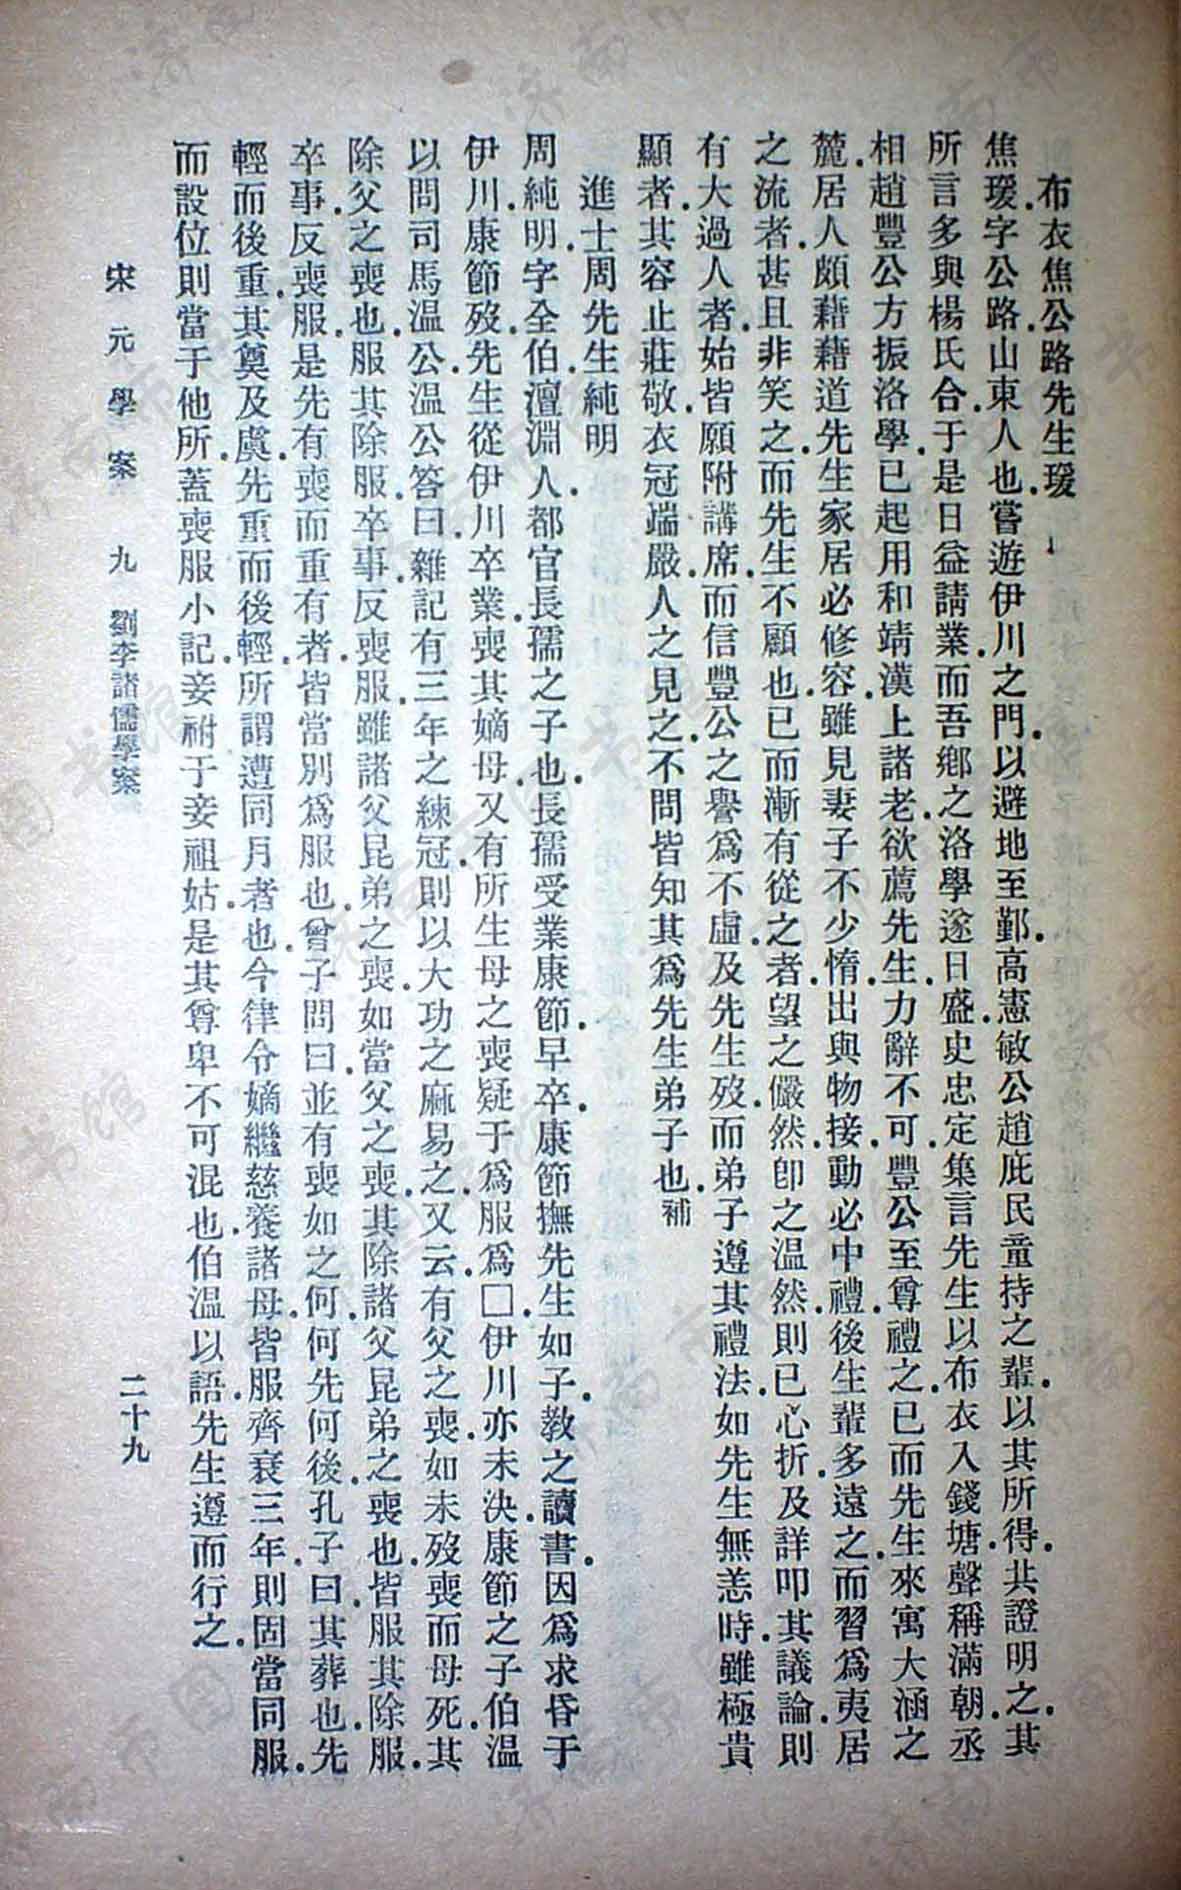 布衣焦公路先生瑗
焦瑗字公路山東人也嘗遊伊川之門以避地至鄞高憲敏公趙庇民童持之輩以其所得共證明之其
所言多與楊氏合于是日益請業而吾鄉之洛學遂日盛史忠定集言先生以布衣入錢塘聲稱滿朝丞
相趙豐公方振洛學已起用和靖漢上諸老欲薦先生力辭不可豐公至尊禮之已而先生來寓大涵之
麓居人頗藉藉道先生家居必修容雖見妻子不少惰出與物接動必中禮後生輩多遠之而習爲夷居
之流者甚且非笑之而先生不顧也已而漸有從之者望之儼然卽之温然則已心折及詳叩其議論則
有大過人者始皆願附講席而信豐公之譽爲不虛及先生歿而弟子遵其禮法如先生無恙時雖極貴
顯者其容止莊敬衣冠端嚴人之見之不問皆知其爲先生弟子也補
進士周先生純明
周純明字全伯澶淵人都官長孺之子也長孺受業康節早卒康節撫先生如子教之讀書因爲求昏于
伊川康節歿先生從伊川卒業喪其嫡母又有所生母之喪疑于爲服爲□伊川亦未決康節之子伯温
以問司馬温公温公答曰雜記有三年之練冠則以大功之麻易之又云有父之喪如未歿喪而母死其
除父之喪也服其除服卒事反喪服雖諸父昆弟之喪如當父之喪其除諸父昆弟之喪也皆服其除服
卒事反喪服是先有喪而重有者皆當別爲服也曾子問曰並有喪如之何何先何後孔子曰其葬也先
輕而後重其奠及虞先重而後輕所謂遭同月者也今律令嫡繼慈養諸母皆服齊衰三年則固當同服
而設位則當于他所蓋喪服小記妾祔于妾祖姑是其尊卑不可混也伯温以語先生遵而行之
宋元學案 九 劉李諸儒學案 二十九